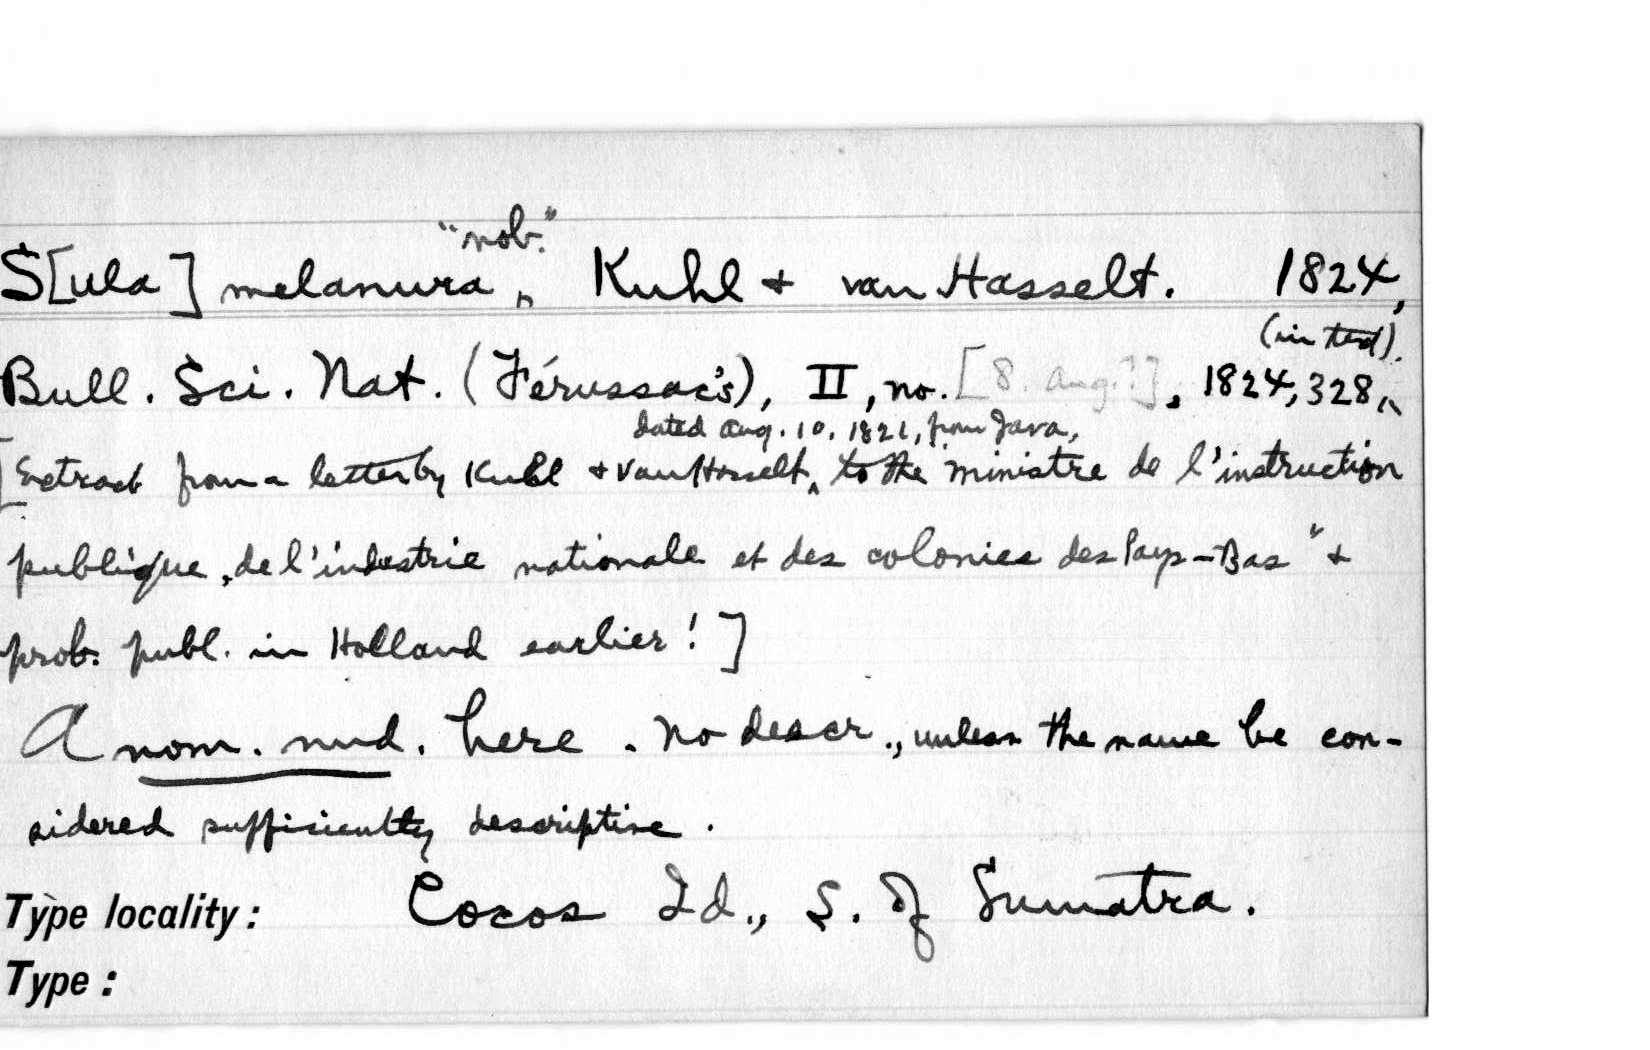 "nob."
S[ula] melanura, Kuhl + van Hasselt. 1824,
(in text).
Bull. Sci. Nat. (Férussac's), II, no. [8. Aug.?], 1824, 328,
dated Aug. 10, 1821, from Java,
[Extract from a letter by Kuhl + van Hasselt, to the "ministre de l'instruction
publique, de l'industrie nationale et des colonies des Pays-Bas" +
prob. publ. in Holland earlier!]
A nom. nud. here. No descr., unless the name be con-
sidered sufficiently descriptive.
Type locality: Cocos Id., S. of Sumatra.
Type: